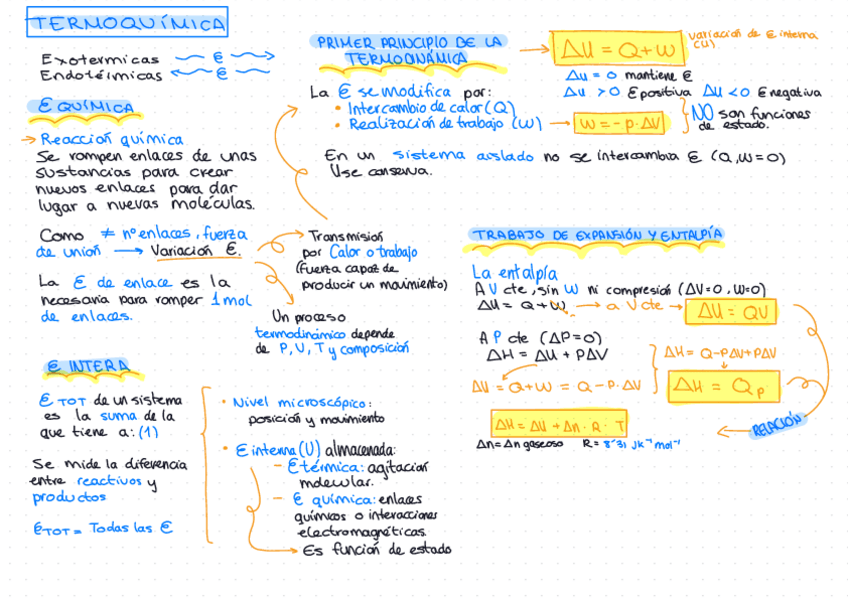 TERMOQUÍMICA
Exotermicas ~ E →
Endotérmicas ← E ~
E QUÍMICA
→ Reacción química
Se rompen enlaces de unas
sustancias para crear
nuevos enlaces para dar
lugar a nuevas moléculas.
Como ≠ nº enlaces, fuerza
de unión → Variación E.
La E de enlace es la
necesaria para romper 1 mol
de enlaces.
Transmisión
por Calor o trabajo
(fuerza capaz de
producir un movimiento)
Un proceso
termodinámico depende
de P, V, T y composición
E INTERA
E TOT de un sistema
es la suma de la
que tiene a: (1)
Se mide la diferencia
entre reactivos y
productos
E TOT = Todas las E
• Nivel microscópico:
posición y movimiento
• E interna (U) almacenada:
- E térmica: agitación
molecular.
- E química: enlaces
químicos o interacciones
electromagnéticas.
→ Es función de estado
PRIMER PRINCIPIO DE LA
TERMODINÁMICA
→ ΔU = Q + W
variación de E interna
(U)
ΔU = 0 mantiene E
ΔU > 0 E positiva ΔU < 0 E negativa
La E se modifica por:
• Intercambio de calor (Q)
• Realización de trabajo (W) → W = - P · ΔV
NO son funciones
de estado.
En un sistema aislado no se intercambia E (Q, W = 0)
U se conserva.
TRABAJO DE EXPANSIÓN Y ENTALPÍA
La entalpía
A V cte, sin W ni compresión (ΔV = 0, W = 0)
ΔU = Q + W → a V cte → ΔU = QV
A P cte (ΔP = 0)
ΔH = ΔU + PΔV
ΔU = Q + W = Q - P · ΔV
ΔH = Q - PΔV + PΔV
ΔH = Qp
ΔH = ΔU + Δn · R · T
← RELACIÓN
Δn = Δn gaseoso R = 8'31 JK⁻¹ mol⁻¹